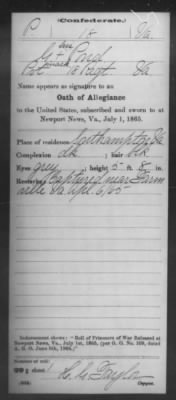 (Confederate.)
P | 18 | Va
Pond
Pvt Va Regt Va
Name appears as signature to an
Oath of Allegiance
to the United States, subscribed and sworn to at
Newport News, Va., July 1, 1865.
Place of residence Southampton, Va
Complexion dk; hair dk
Eyes grey; height 5 ft. 8 in.
Remarks: Captured near Farm
ville Va Apl 6/65
Indorsement shows: "Roll of Prisoners of War Released at
Newport News, Va., July 1st, 1865, (per G. O. No. 109, dated
A. G. O. June 6th, 1865.)"
Number of roll:
sheet
Taylor
Copyist.